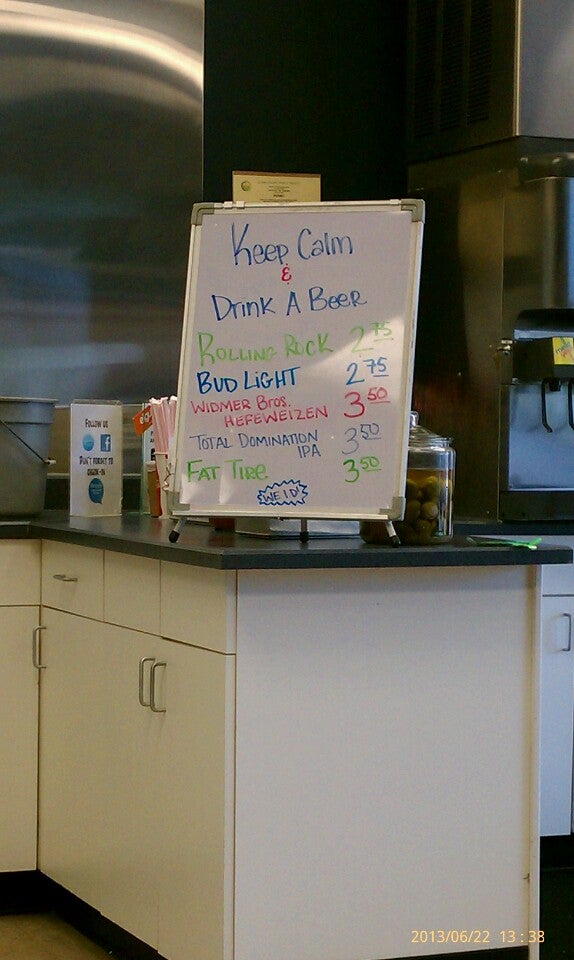 Keep Calm
&
Drink A Beer
Rolling Rock 2 75
Bud Light 2 75
Widmer Bros.
Hefeweizen 3 50
Total Domination
IPA 3 50
Fat Tire 3 50
WE ID!
Follow us
Don't forget to
check-in
2013/06/22 13:38